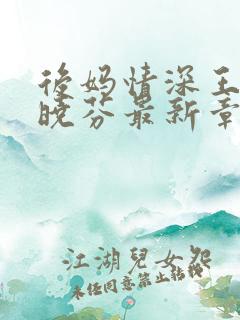 後妈情深王
晓芬最新章
江湖兒女怨
未经同意禁止转载